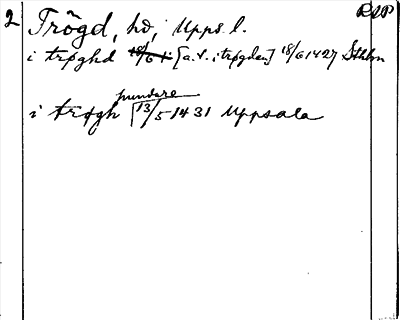 2 Trögd, hd, Upps. l. RAP
i trøghd [a.s. i trøgden] 18/6 1427 Sthlm
pundare
i trøgh 13/5 1431 Uppsala